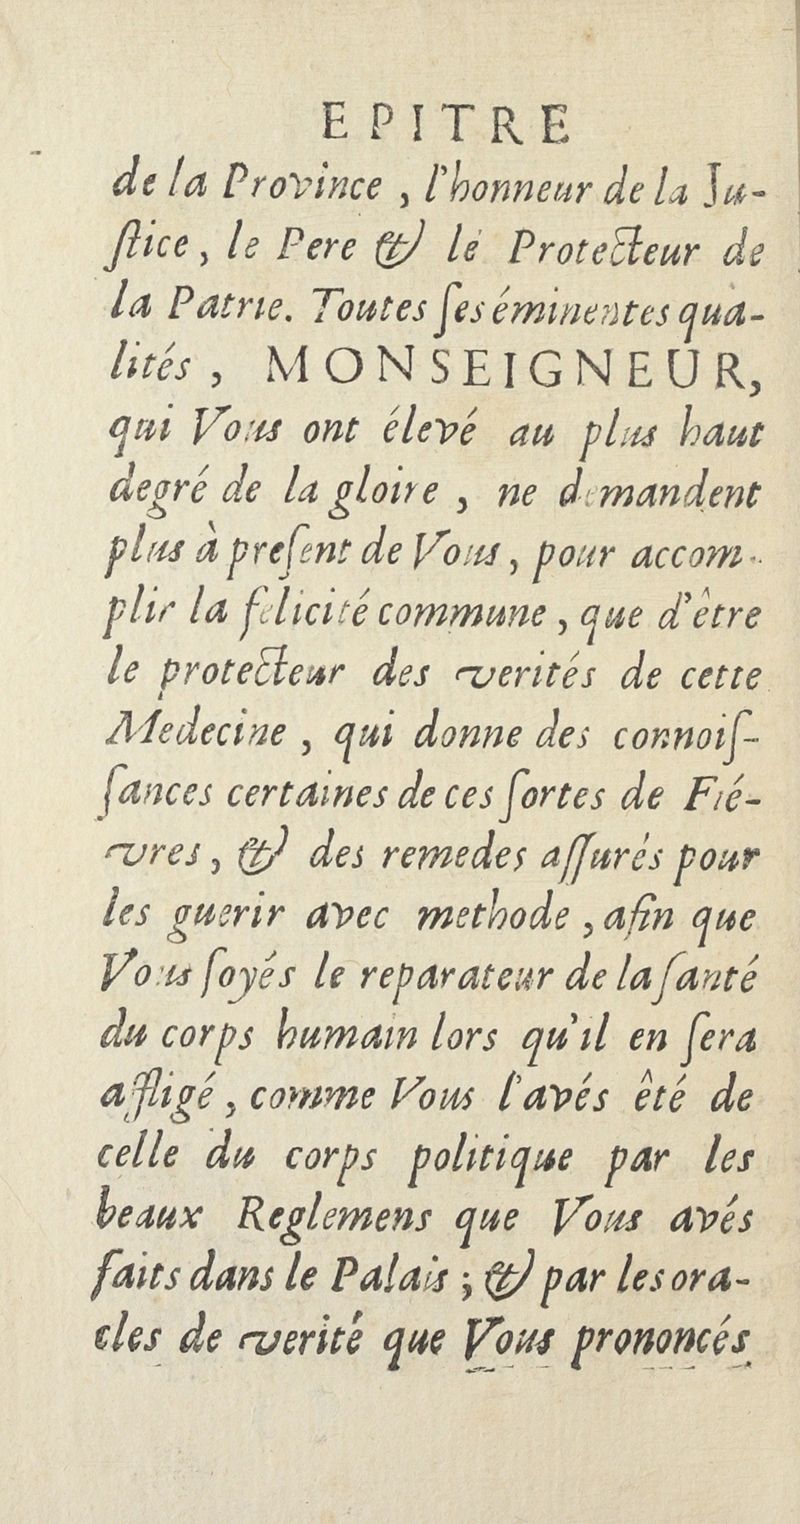 EPITRE
de la Province , l'honneur de la Ju-
ſtice , le Pere & le Protecteur de
la Patrie. Toutes ſes éminentes qua-
lités , MONSEIGNEUR,
qui Vous ont élevé au plus haut
degré de la gloire , ne demandent
plus à preſent de Vous , pour accom-
plir la felicité commune , que d'être
le protecteur des verités de cette
Medecine , qui donne des connoiſ-
ſances certaines de ces ſortes de Fié-
vres , & des remedes aſſurés pour
les guerir avec methode , afin que
Vous ſoyés le reparateur de la ſanté
du corps humain lors qu'il en ſera
affligé , comme Vous l'avés êté de
celle du corps politique par les
beaux Reglemens que Vous avés
faits dans le Palais ; & par les ora-
cles de verité que Vous prononcés